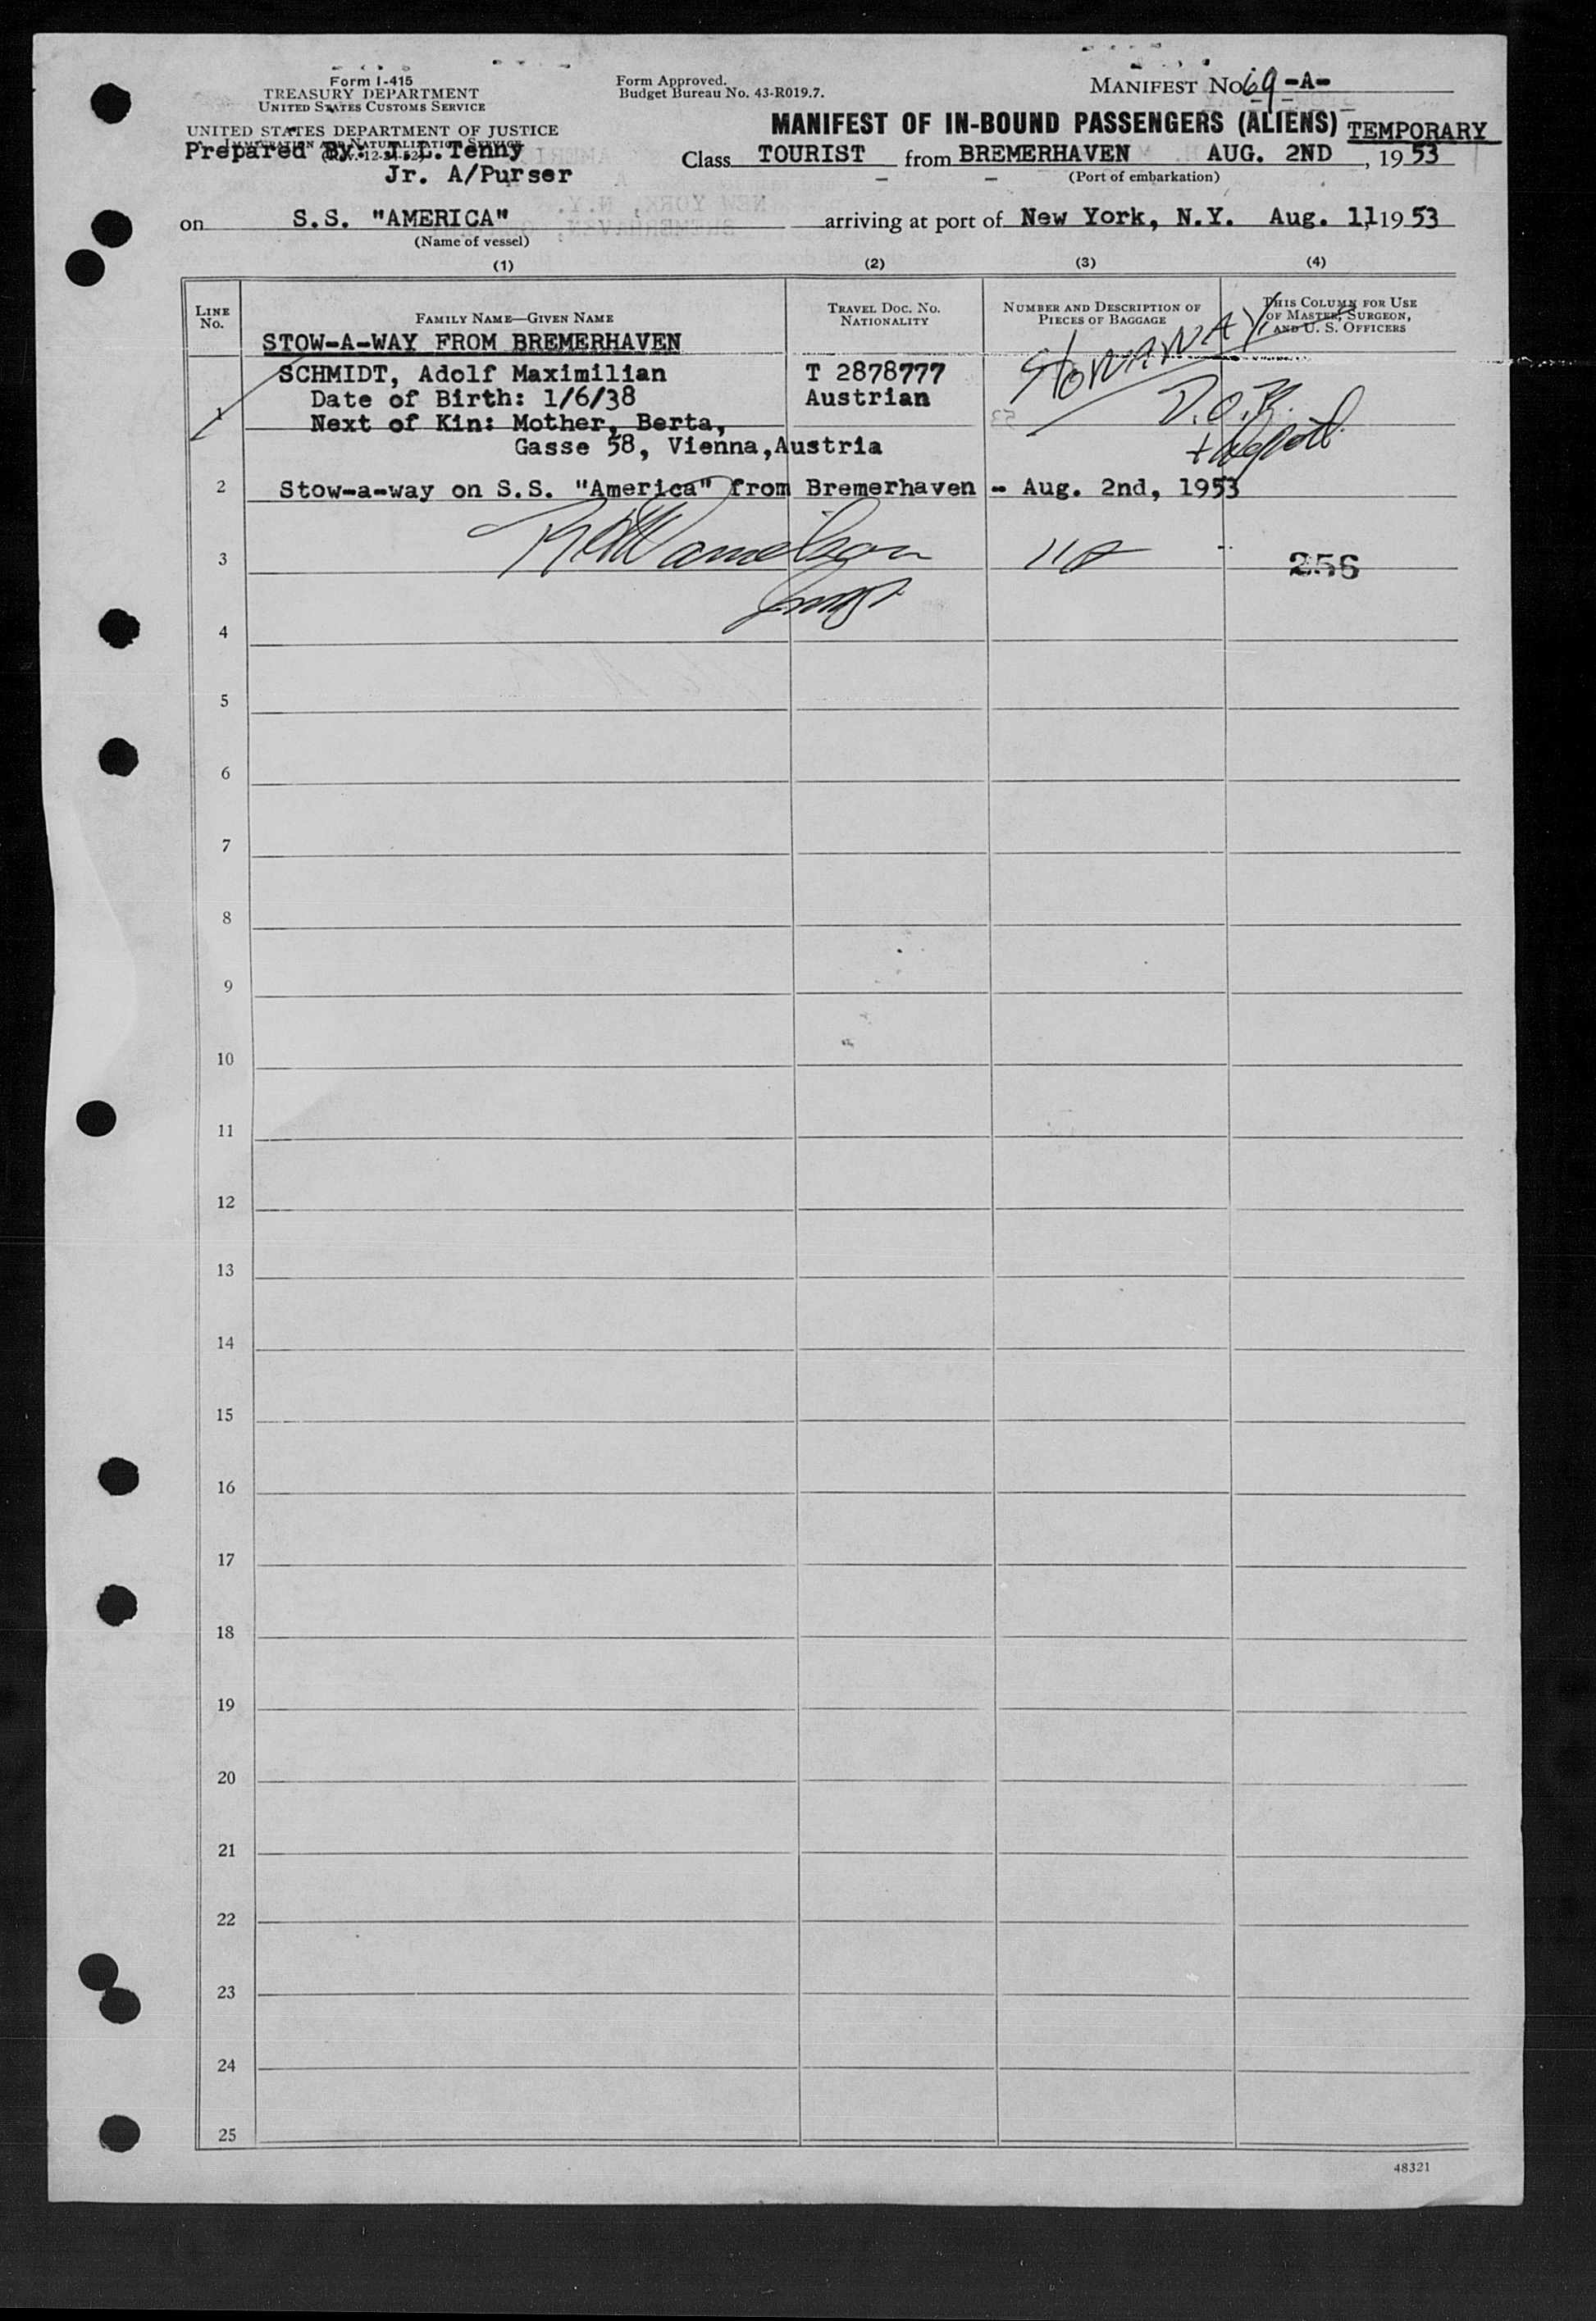 Form I-415
TREASURY DEPARTMENT
UNITED STATES CUSTOMS SERVICE
UNITED STATES DEPARTMENT OF JUSTICE
IMMIGRATION AND NATURALIZATION SERVICE
Prepared By: J.L.Tenny
Jr. A/Purser
Form Approved.
Budget Bureau No. 43-R019.7.
MANIFEST No. 69 -A-
MANIFEST OF IN-BOUND PASSENGERS (ALIENS) TEMPORARY
Class TOURIST from BREMERHAVEN AUG. 2ND, 1953
(Port of embarkation)
on S.S. "AMERICA" arriving at port of New York, N.Y. Aug. 11, 1953
(Name of vessel)
(1) (2) (3) (4)
LINE No. FAMILY NAME—GIVEN NAME TRAVEL DOC. No. NATIONALITY NUMBER AND DESCRIPTION OF PIECES OF BAGGAGE THIS COLUMN FOR USE OF MASTER, SURGEON, AND U. S. OFFICERS
STOW-A-WAY FROM BREMERHAVEN
STOWAWAY
SCHMIDT, Adolf Maximilian T 2878777
Date of Birth: 1/6/38 Austrian
1 Next of Kin: Mother, Berta,
Gasse 58, Vienna,Austria
2 Stow-a-way on S.S. "America" from Bremerhaven - Aug. 2nd, 1953
3 256
4
5
6
7
8
9
10
11
12
13
14
15
16
17
18
19
20
21
22
23
24
25
48321